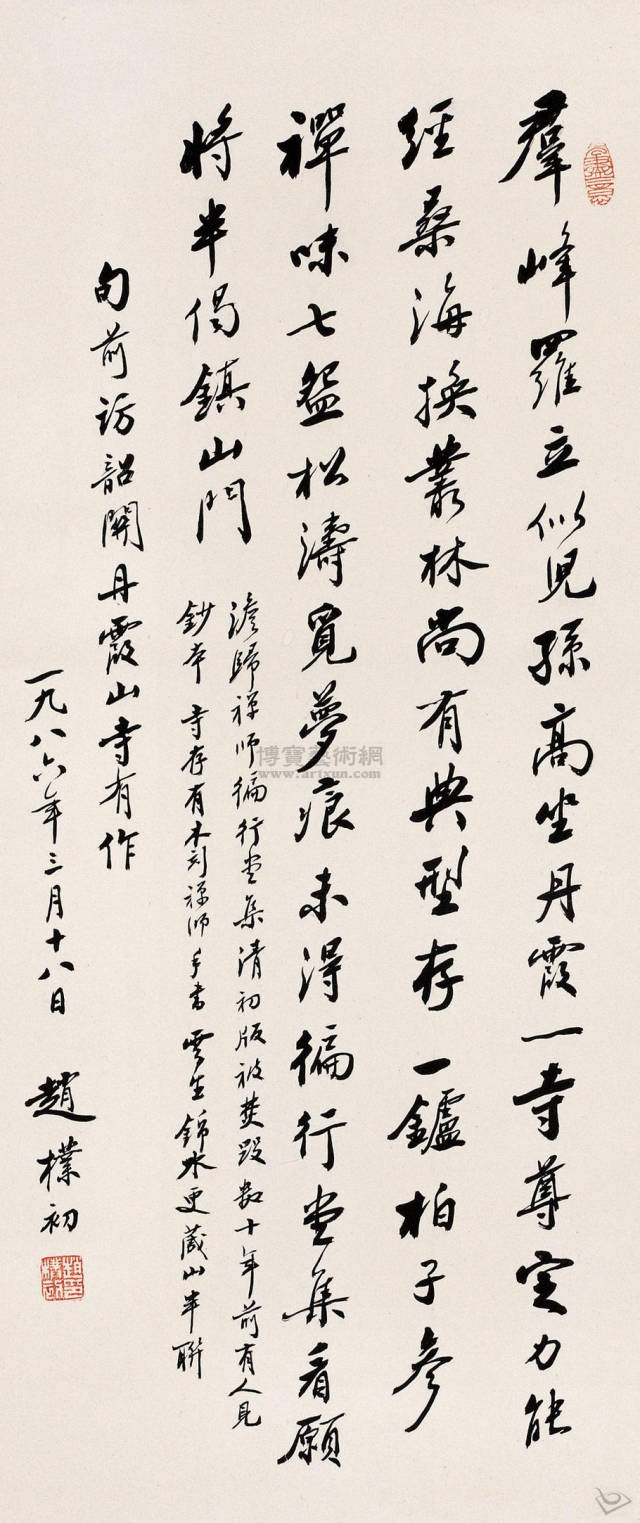 羣峰羅立似児孫高坐丹霞一寺尊定力能
經桑海換叢林尚有典型存一鑪柏子參
禪味七盌松濤覓夢痕未得徧行堂集看願
將半偈鎮山門
澹歸禅师徧行堂集清初版被焚毀數十年前有人見
鈔本 寺存有木刻禅师手書 雲生錦水更藏山半聯
旬前訪韶關丹霞山寺有作
一九八六年三月十八日
趙樸初
博寶藝術網
www.artxun.com